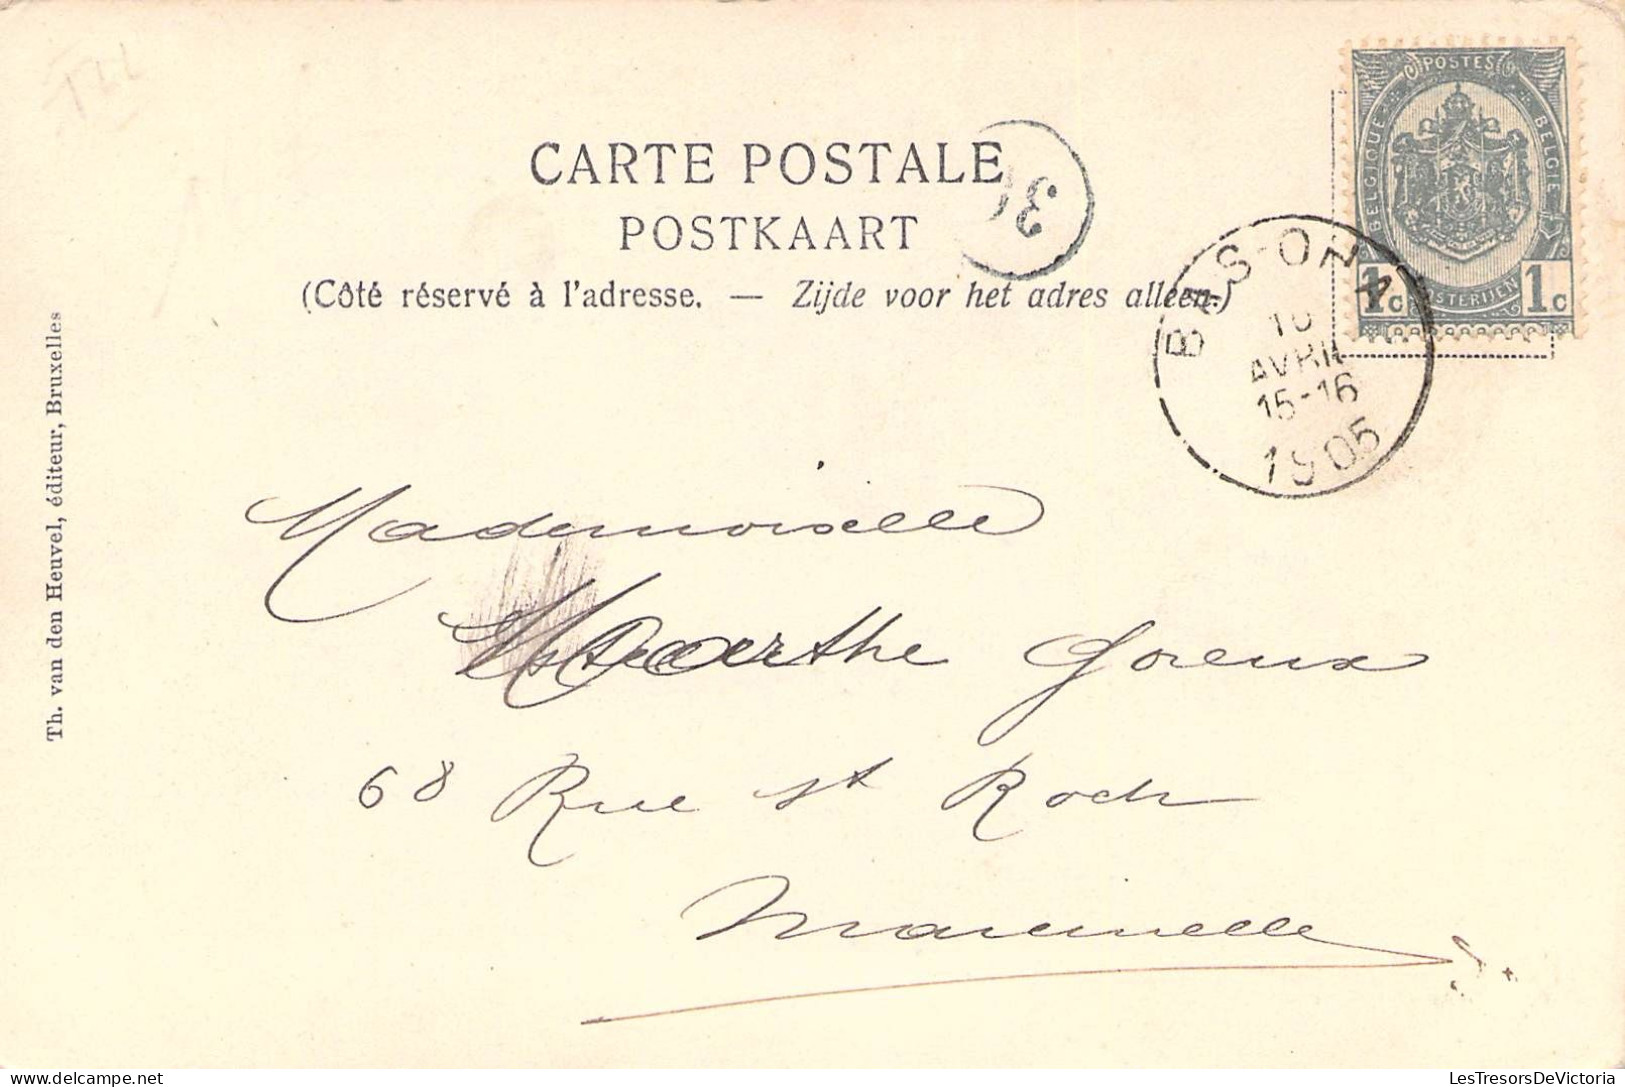 CARTE POSTALE
POSTKAART
(Côté réservé à l'adresse. — Zijde voor het adres alleen.)
POSTES
BELGIQUE
BELGIE
POSTERIJEN
1c 1c
BAS-OHA
10
AVRIL
15-16
1905
Mademoiselle
Marthe Goreux
68 Rue St Roch
Marcinelle
Th. van den Heuvel, éditeur, Bruxelles
LesTresorsDeVictoria